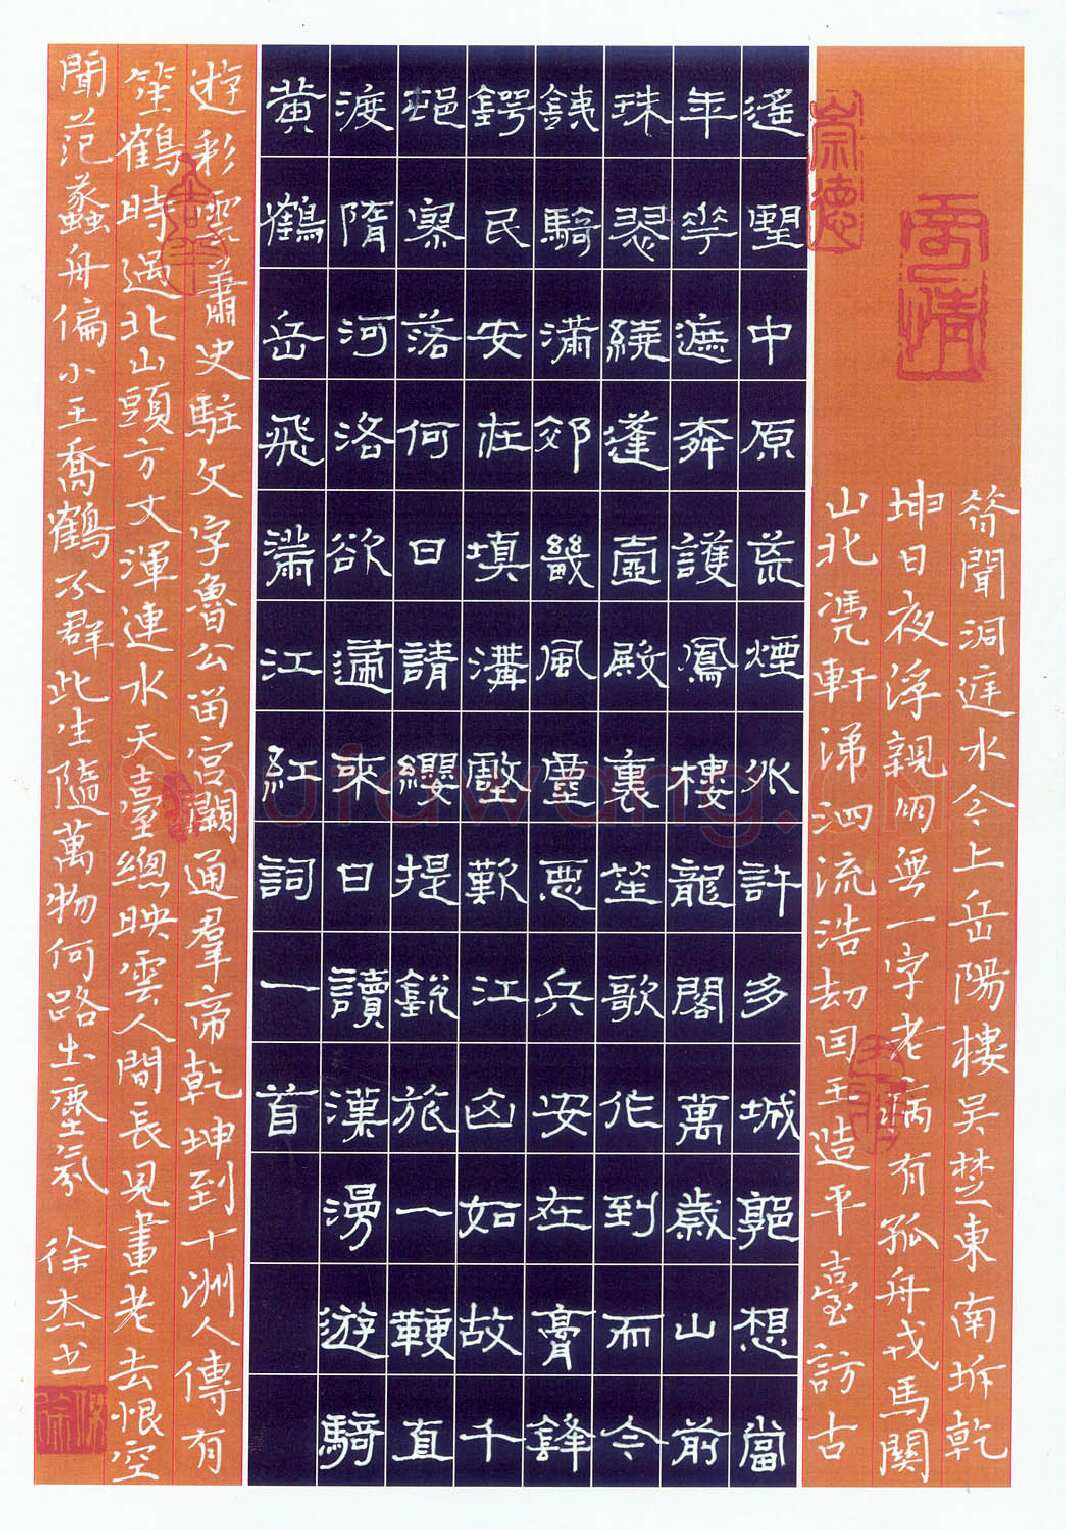 昔聞洞庭水今上岳陽樓吴楚東南坼乾
坤日夜浮親朋無一字老病有孤舟戎馬關
山北凭軒涕泗流浩劫因王造平臺訪古
遙望中原荒煙外許多城郭想當
年花遮柳護鳳樓龍閣萬歲山前
珠翠繞蓬壺殿裏笙歌作到而今
鐵騎滿郊畿風塵惡兵安在膏鋒
鍔民安在填溝壑歎江山如故千
邨寥落何日請纓提銳旅一鞭直
渡清河洛欲遞來日讀漢漫遊騎
黃鶴岳飛滿江紅詞一首
遊彩雲蕭史駐文字魯公留宮闕通羣帝乾坤到十洲人傳有
笙鶴時過北山頭方丈渾連水天臺總映雲人間長見畫老去恨空
聞范蠡舟偏小王喬鶴不群此生隨萬物何路出塵氛 徐杰书
崇德